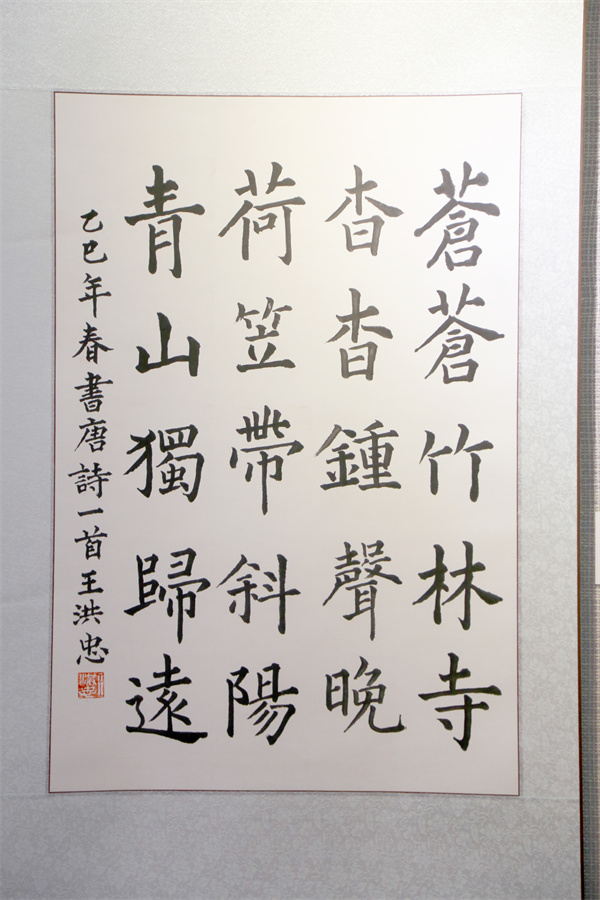 蒼蒼竹林寺
杳杳鍾聲晚
荷笠帶斜陽
青山獨歸遠
乙巳年春書唐詩一首王洪忠